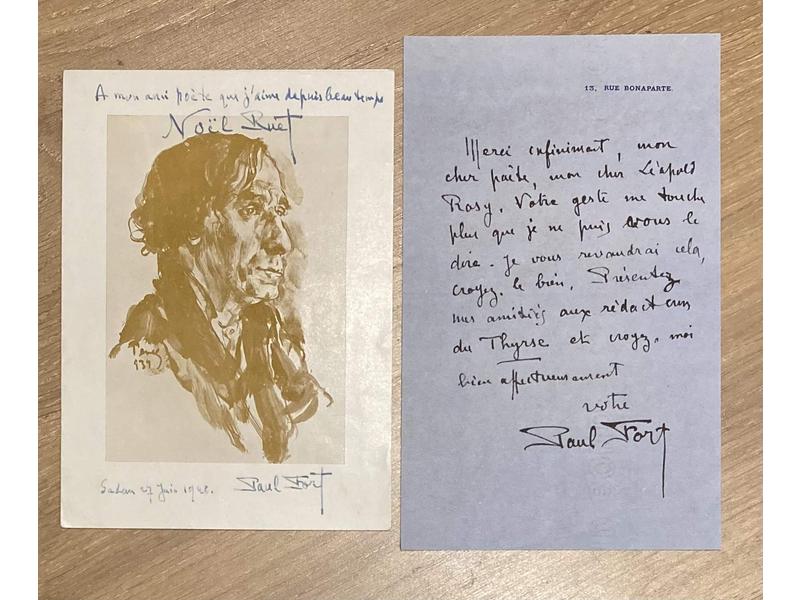 A mon ami poète que j'aime depuis beau temps
Noël Ruet
1934
27 Juin 1948.
Paul Fort
13, RUE BONAPARTE.
Merci infiniment, mon
cher poète, mon cher Léopold
Rosy. Votre geste me touche
plus que je ne puis vous le
dire. Je vous revaudrai cela,
croyez-le bien. Présentez
mes amitiés aux rédacteurs
du Thyrse et croyez-moi
bien affectueusement
votre
Paul Fort